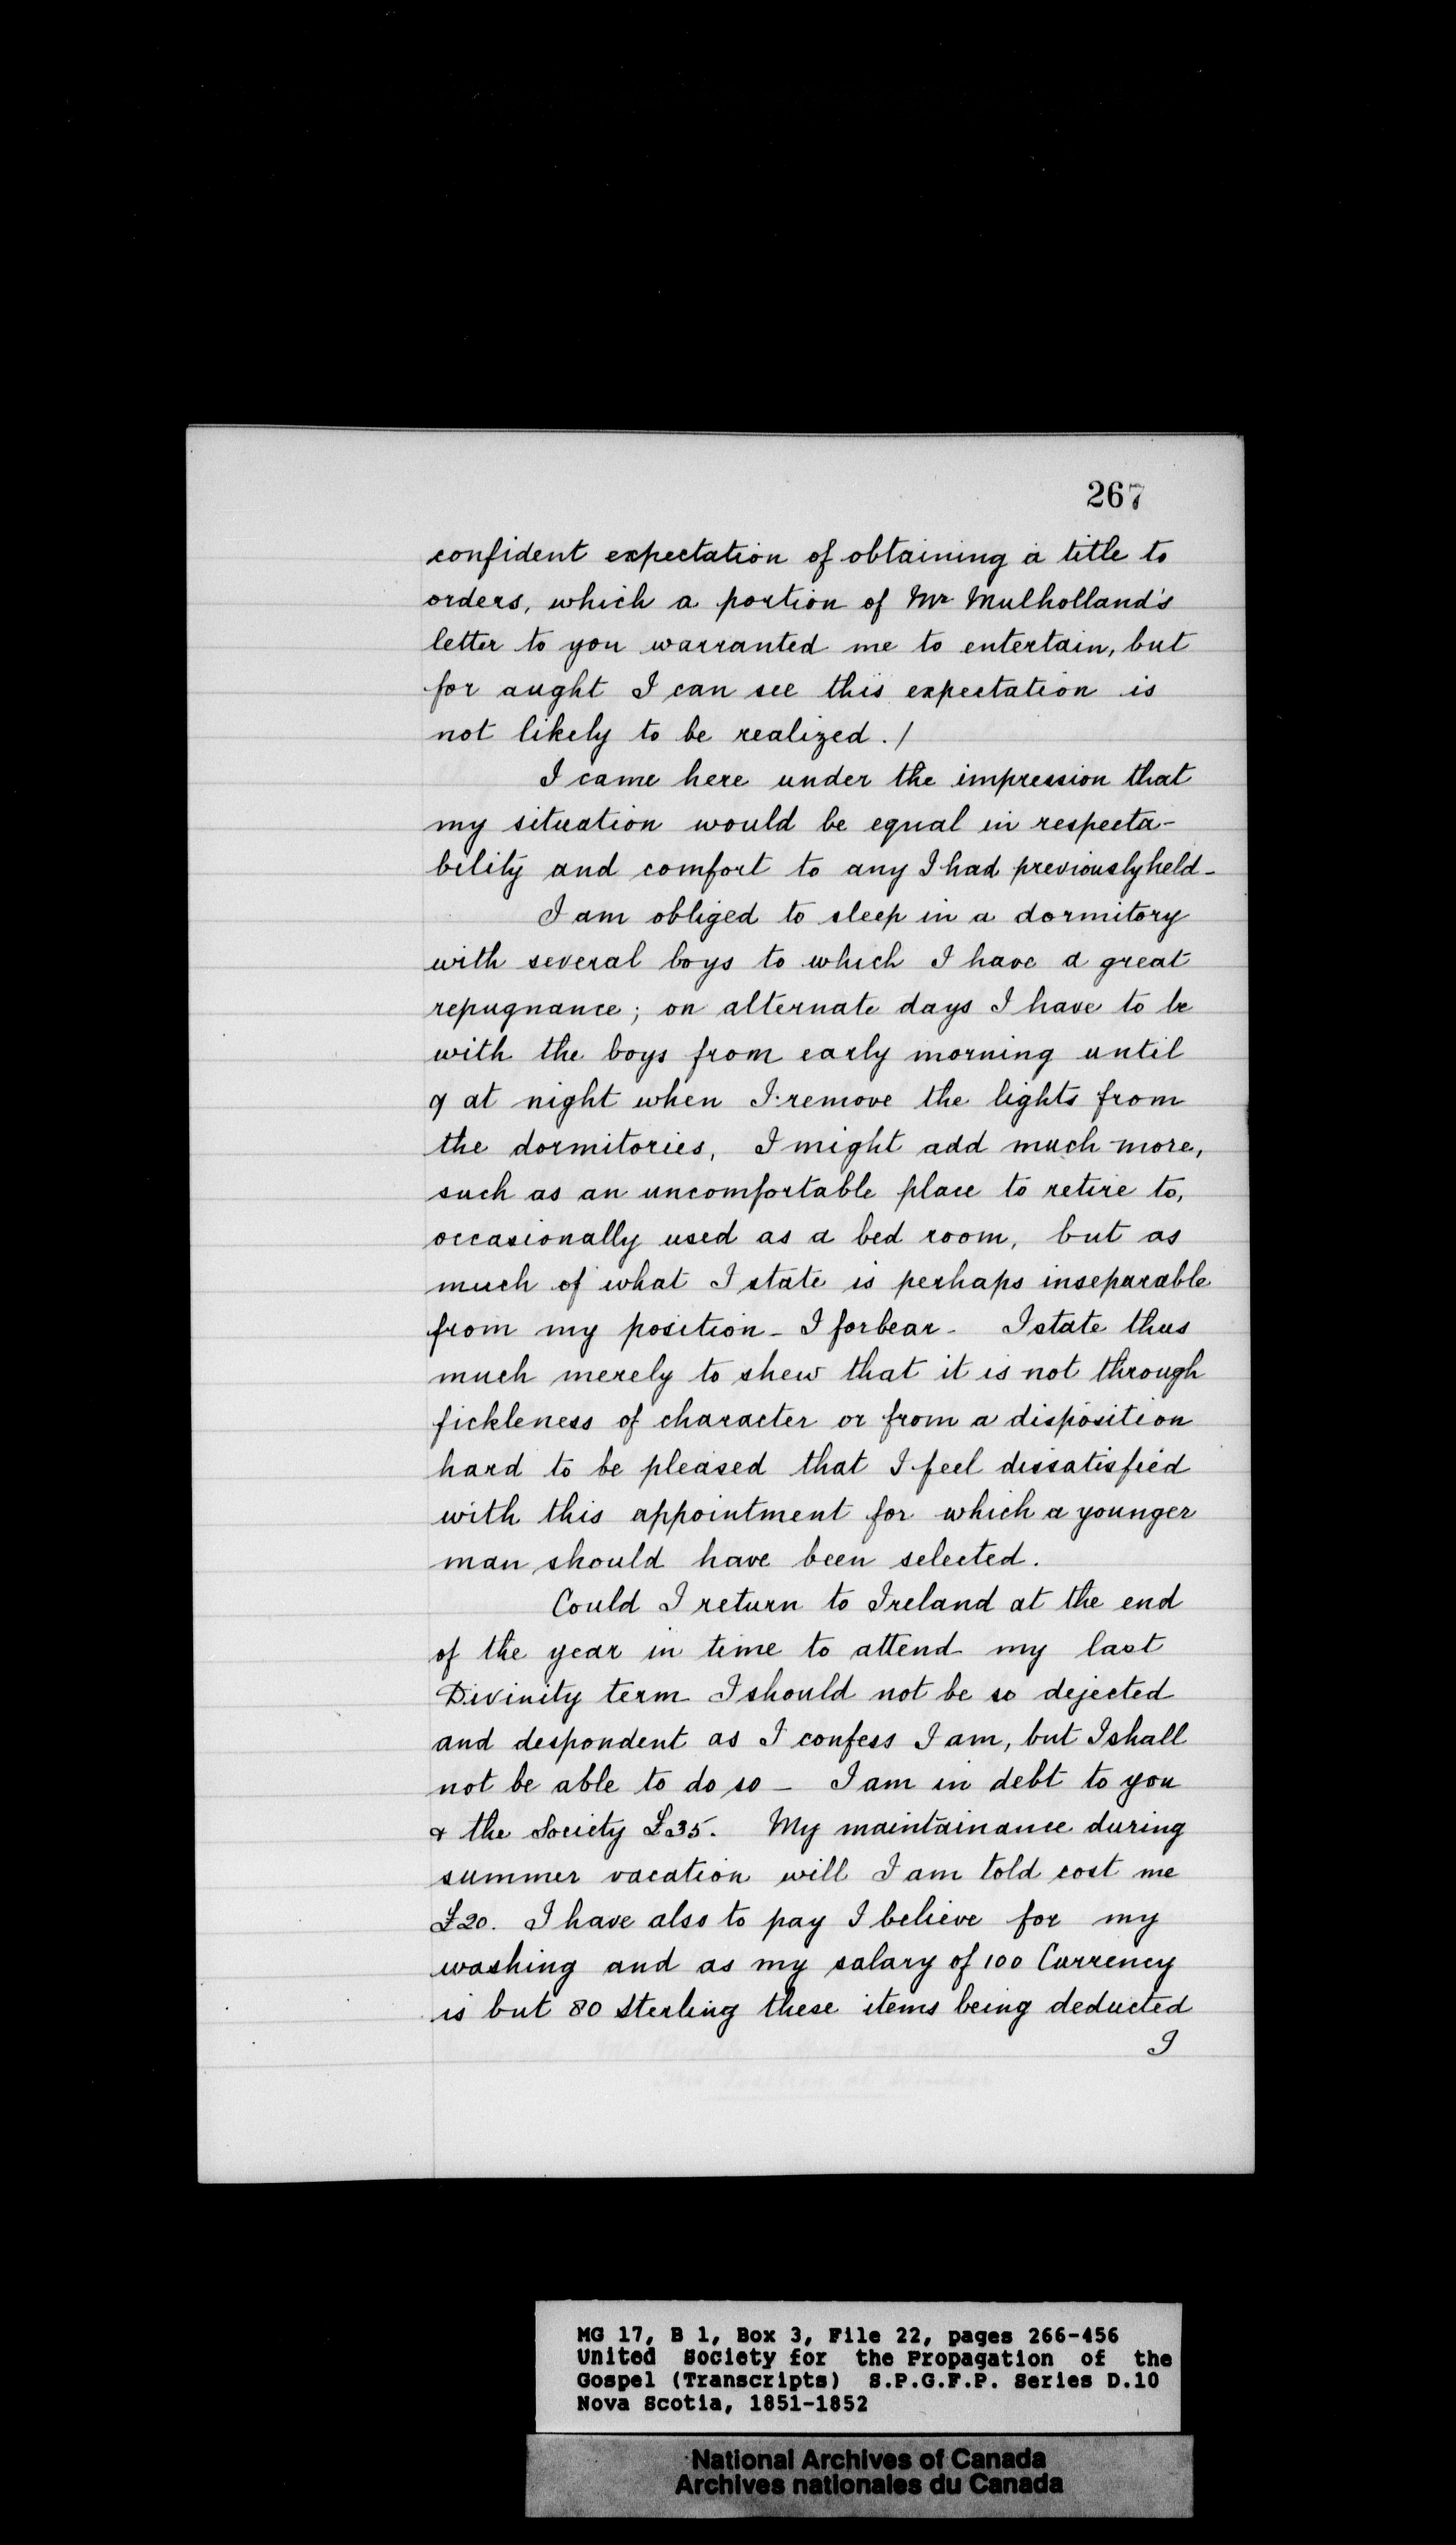 267
confident expectation of obtaining a title to
orders, which a portion of Mr Mulholland's
letter to you warranted me to entertain, but
for aught I can see this expectation is
not likely to be realized. /
I came here under the impression that
my situation would be equal in respecta-
bility and comfort to any I had previously held -
I am obliged to sleep in a dormitory
with several boys to which I have a great
repugnance; on alternate days I have to be
with the boys from early morning until
9 at night when I remove the lights from
the dormitories, I might add much more,
such as an uncomfortable place to retire to,
occasionally used as a bed room, but as
much of what I state is perhaps inseparable
from my position - I forbear - I state thus
much merely to shew that it is not through
fickleness of character or from a disposition
hard to be pleased that I feel dissatisfied
with this appointment for which a younger
man should have been selected.
Could I return to Ireland at the end
of the year in time to attend my last
Divinity term I should not be so dejected
and despondent as I confess I am, but I shall
not be able to do so - I am in debt to you
& the Society £35. My maintainance during
summer vacation will I am told cost me
£20. I have also to pay I believe for my
washing and as my salary of 100 Currency
is but 80 Sterling these items being deducted
I
MG 17, B 1, Box 3, File 22, pages 266-456
United Society for the Propagation of the
Gospel (Transcripts) S.P.G.F.P. Series D.10
Nova Scotia, 1851-1852
National Archives of Canada
Archives nationales du Canada